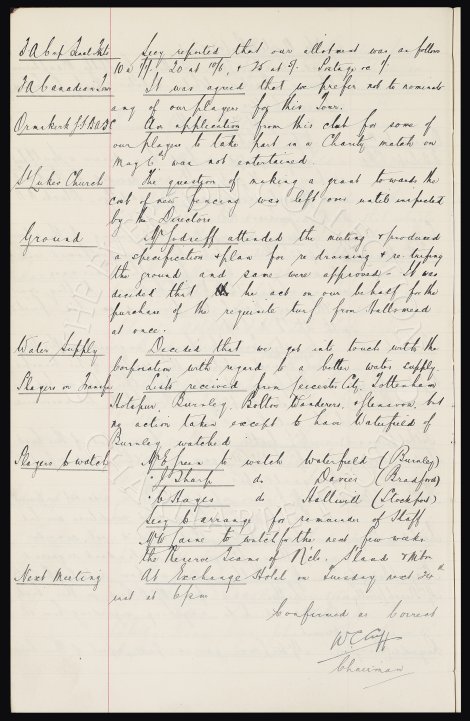 F A Cup Final Tkts Secy reported that our allotment was as follows
10 at 20 at 10/6, & 75 at 5/-. Postage &c
F A Canadian Tour It was agreed that we prefer not to nominate
any of our players for this Tour.
Ormskirk An application from this club for some of
our players to take part in a Charity match on
May 6th was not entertained.
St Lukes Church The question of making a grant towards the
cost of new fencing was left over until inspected
by the Directors
Ground Mr attended the meeting & produced
a specification & plan for re draining & re turfing
the ground and same were approved. It was
decided that he act on our behalf for the
purchase of the requisite turf from
at once.
Water Supply Decided that we get into touch with the
Corporation with regard to a better water supply.
Players on Transfer Lists received from Leicester City, Tottenham
Hotspur, Burnley, Bolton Wanderers, & but
no action taken except to have Waterfield of
Burnley watched
Players to watch Mr E. Green to watch Waterfield (Burnley)
" J Sharp do Davies (Bradford)
" C Hayes do Halliwell (Stockport)
Secy to arrange for remainder of Staff
Mr W to watch for the next few weeks
the Reserve Teams of
Next Meeting At Exchange Hotel on Tuesday next
inst at 6 pm
Confirmed as Correct
W C Cuff
Chairman